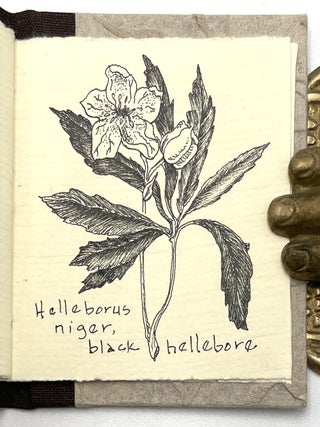 Helleborus
niger,
black hellebore